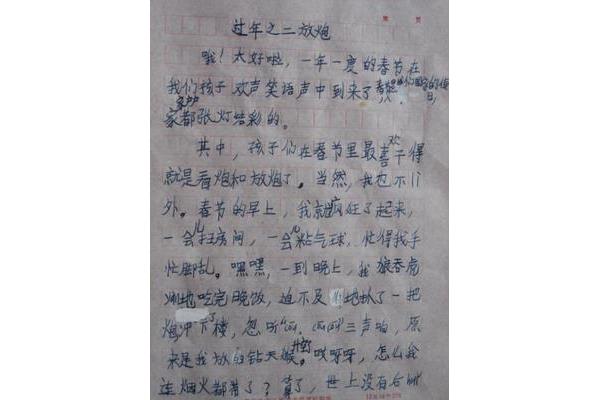 页
过年之二放炮
哦！太好啦，一年一度的春节在
我们孩子欢声笑语声中到来了
家家户户
都张灯结彩的。
其中，孩子们在春节里最喜欢干得
就是看炮和放炮了。当然，我也不例
外。春节的早上，我就疯狂了起来，
一会儿扫房间，一会儿粘气球，忙得我手
忙脚乱。嘿嘿，一到晚上，我狼吞虎
咽地吃完晚饭，迫不及 地抓了一把
炮冲下了楼，忽听 三声响，原
来是我放的钻天猴 。哎呀呀，怎么
连烟火都 了？算了，世上没有后